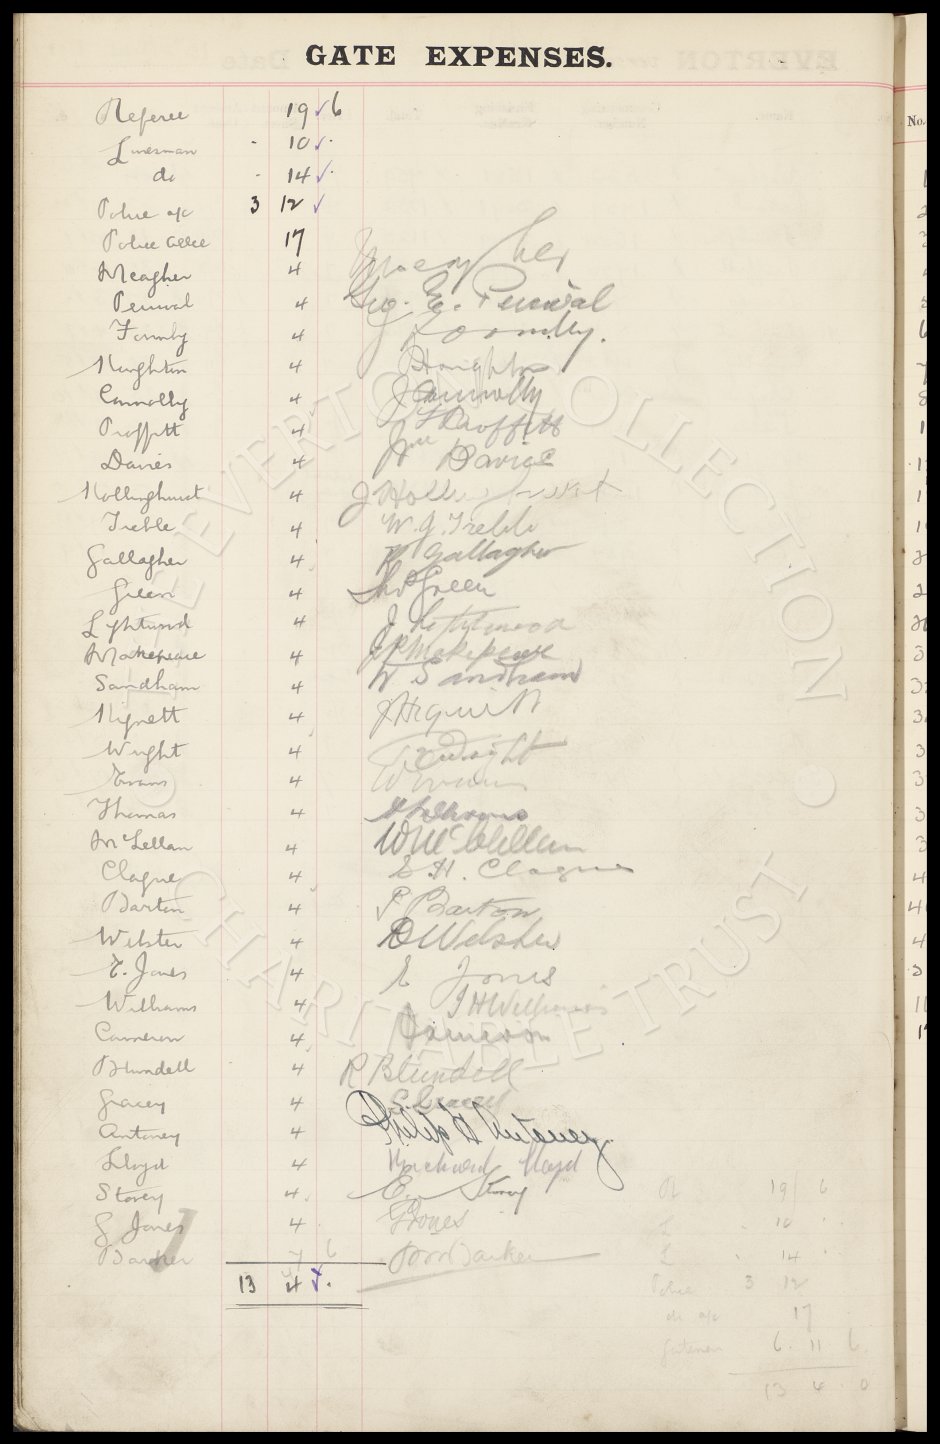 GATE EXPENSES.
Referee 19 6
Linesman - 10 -
do - 14 -
Police a/c 3 12
Police 17
Meagher 4
Percival 4 Geo. E. Percival
Formby 4 Formby.
Houghton 4 Houghton
Connolly 4 J Connolly
Proffitt 4 Proffitt
Davies 4 Wm Davies
Hollinghurst 4 J Hollinghurst
Treble 4 W. J. Treble
Gallagher 4 Gallagher
Green 4 Thos Green
Lightwood 4 J. Lightwood
Makepeace 4 Makepeace
Sandham 4 W Sandham
Hignett 4 J Hignett
Wright 4 Wright
Evans 4
Thomas 4 Thomas
McLellan 4 W McClellan
Clague 4 E H. Clague
Barton 4 P Barton
Webster 4 Webster
E. Jones 4 E Jones
Williams 4 J H Williams
Cameron 4 Cameron
Blundell 4 R Blundell
Gracey 4 E. Gracey
Antoney 4 Philip H Antoney.
Lloyd 4 Lloyd
Storey 4 E. Storey
G Jones 4 G Jones
Barker 7 6 Barker
13 4 -
R 19 6
L - 10 -
L - 14 -
Police 3 12
do a/c 17
Gatemen 6 11 6
13 4 0
No.
EVERTON COLLECTION CHARITABLE TRUST